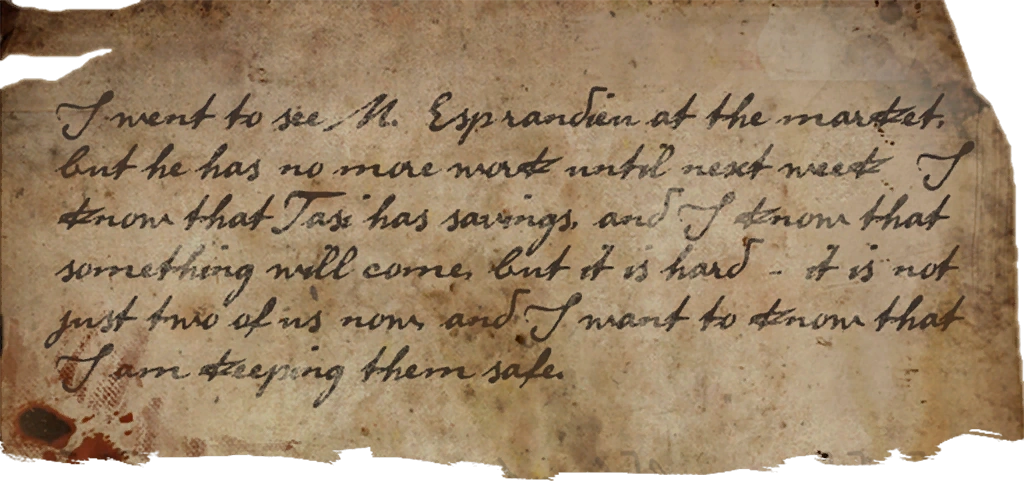 I went to see M. Esprandieu at the market,
but he has no more work until next week I
know that Tasi has savings, and I know that
something will come, but it is hard - it is not
just two of us now, and I want to know that
I am keeping them safe.